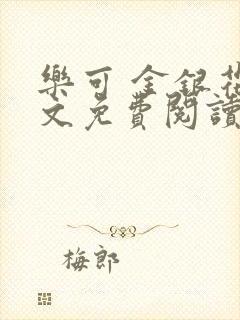 樂可 金銀花
文免費閱讀
梅郎